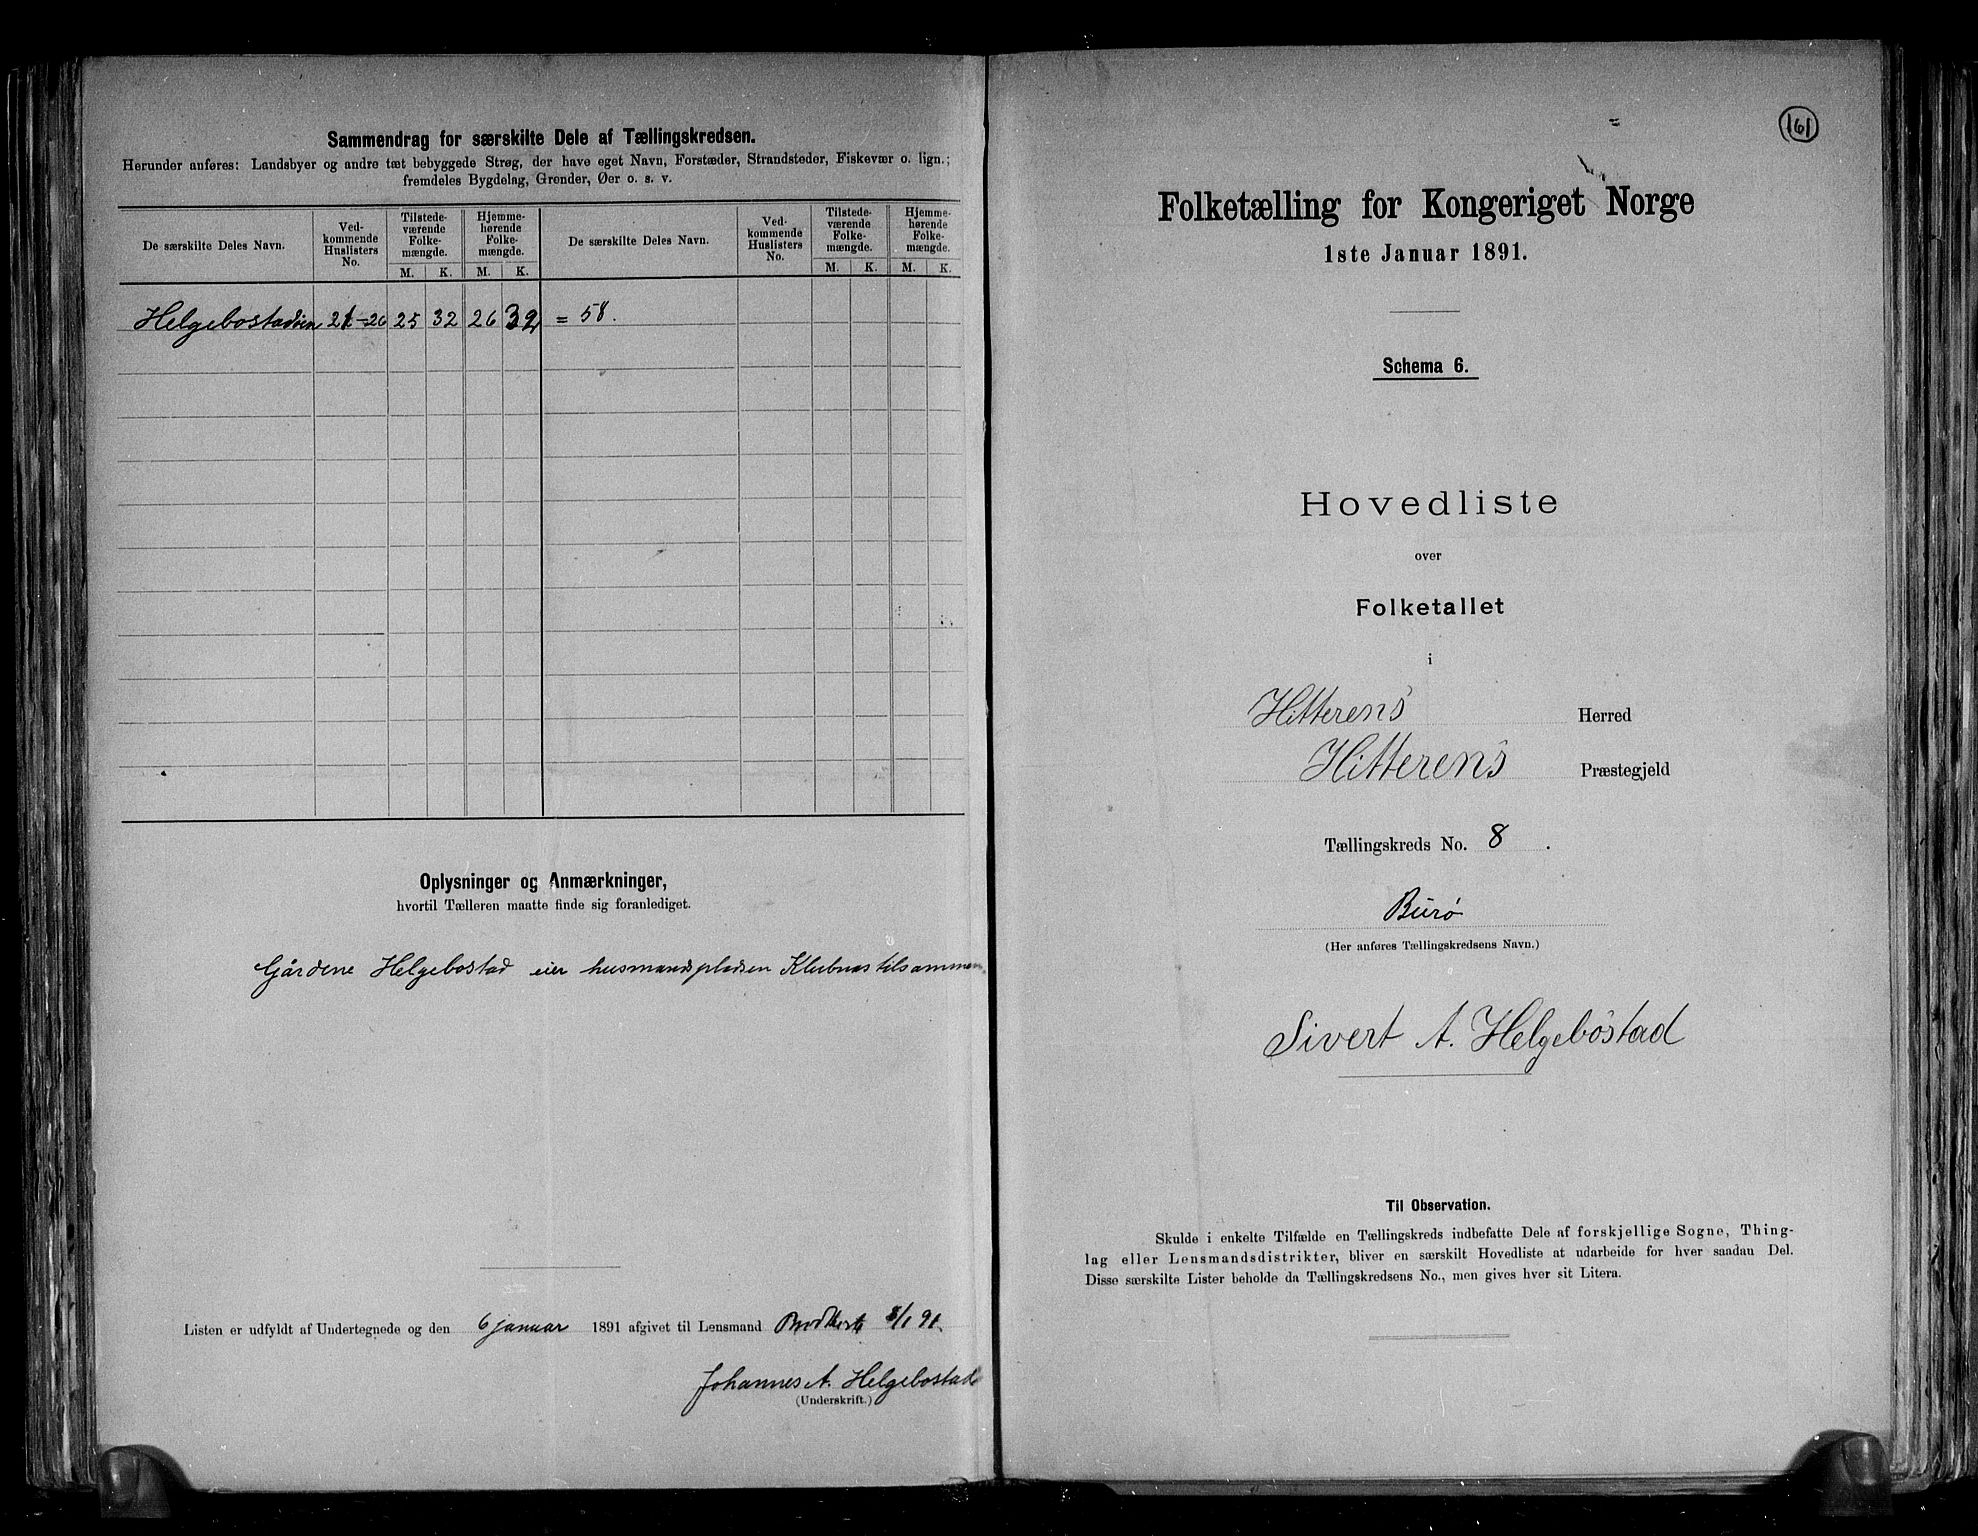 Sammendrag for særskilte Dele af Tællingskredsen.
Herunder anføres: Landsbyer og andre tæt bebyggede Strøg, der have eget Navn, Forstæder, Strandsteder, Fiskevær o. lign.;
fremdeles Bygdelag, Grender, Øer o. s. v.
De særskilte Deles Navn.
Ved-
kommende
Huslisters
No.
Tilstede-
værende
Folke-
mængde.
Hjemme-
hørende
Folke-
mængde.
De særskilte Deles Navn.
Ved-
kommende
Huslisters
No.
Tilstede-
værende
Folke-
mængde.
Hjemme-
hørende
Folke-
mængde.
M. K. M. K. M. K. M. K.
Helgebostadøen 21-26 25 32 26 32 = 58.
Oplysninger og Anmærkninger,
hvortil Tælleren maatte finde sig foranlediget.
Gårdene Helgebostad eier husmandspladsen Klubnæs tilsammen
Listen er udfyldt af Undertegnede og den 6 januar 1891 afgivet til Lensmand 8/1 91.
Johannes A. Helgebostad
(Underskrift.)
161
Folketælling for Kongeriget Norge
1ste Januar 1891.
Schema 6.
Hovedliste
over
Folketallet
i
Hitterens Herred
Hitterens Præstegjeld
Tællingskreds No. 8.
Burø
(Her anføres Tællingskredsens Navn.)
Sivert A. Helgebostad
Til Observation.
Skulde i enkelte Tilfælde en Tællingskreds indbefatte Dele af forskjellige Sogne, Thing-
lag eller Lensmandsdistrikter, bliver en særskilt Hovedliste at udarbeide for hver saadan Del.
Disse særskilte Lister beholde da Tællingskredsens No., men gives hver sit Litera.